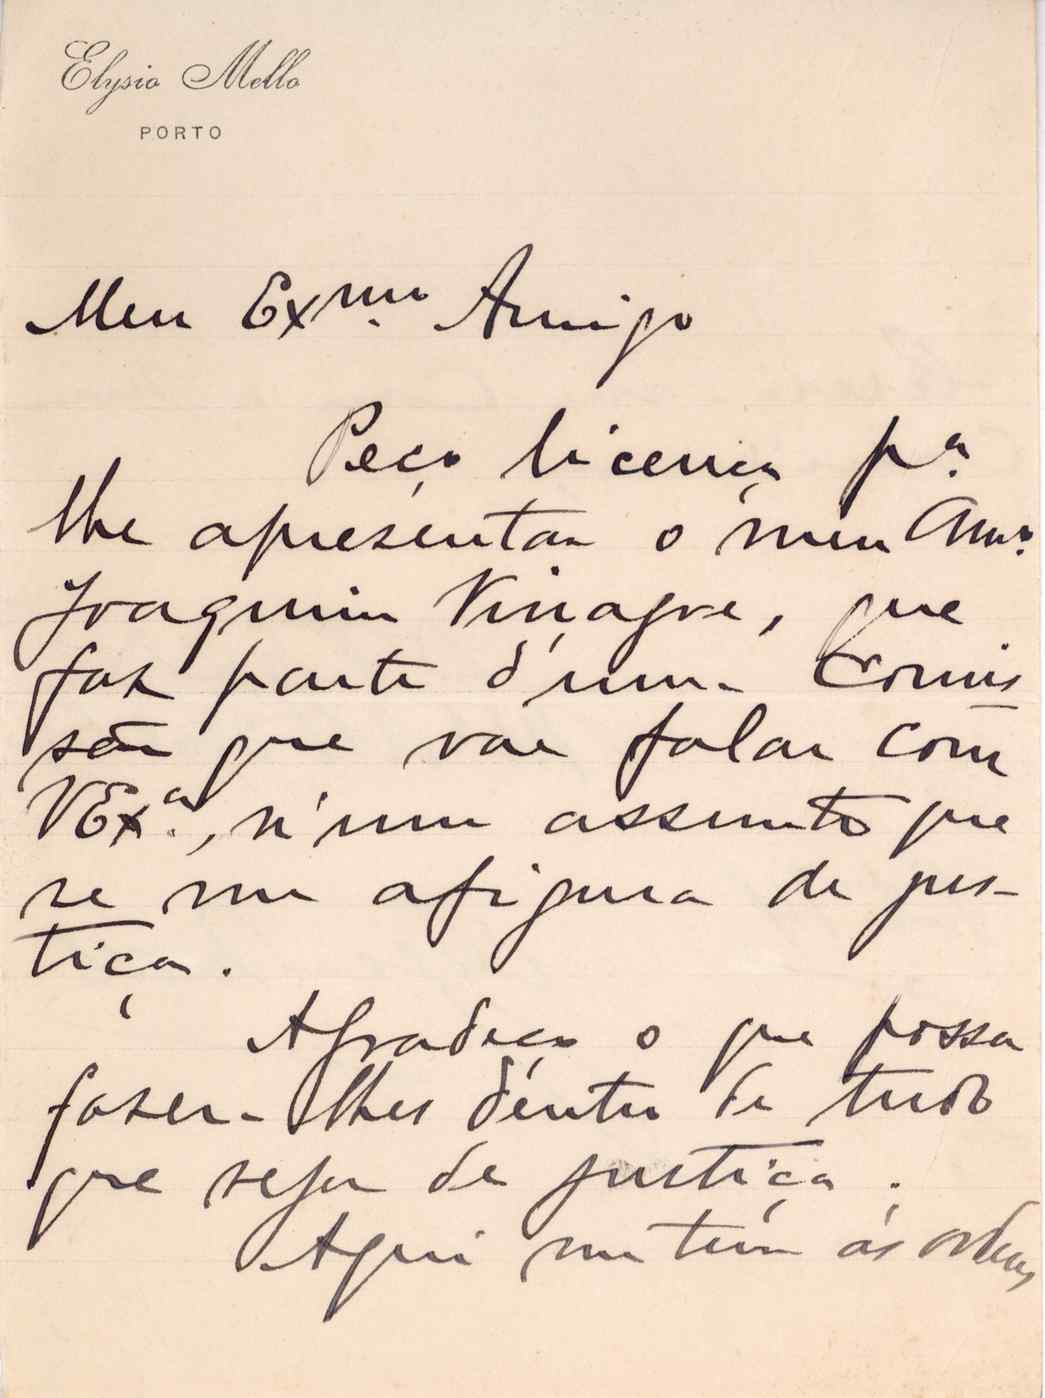 Elysio Mello
PORTO
Meu Exmo. Amigo
Peço licença pa.
lhe apresentar o meu Amo.
Joaquim Vinagre, que
faz parte d'uma Comis
são que vae falar com
VExa., n'um assumto que
se me afigura de jus-
tiça.
Agradeço o que possa
fazer-lhes dentro de tudo
que seja de justiça.
Aqui me tem ás ordens